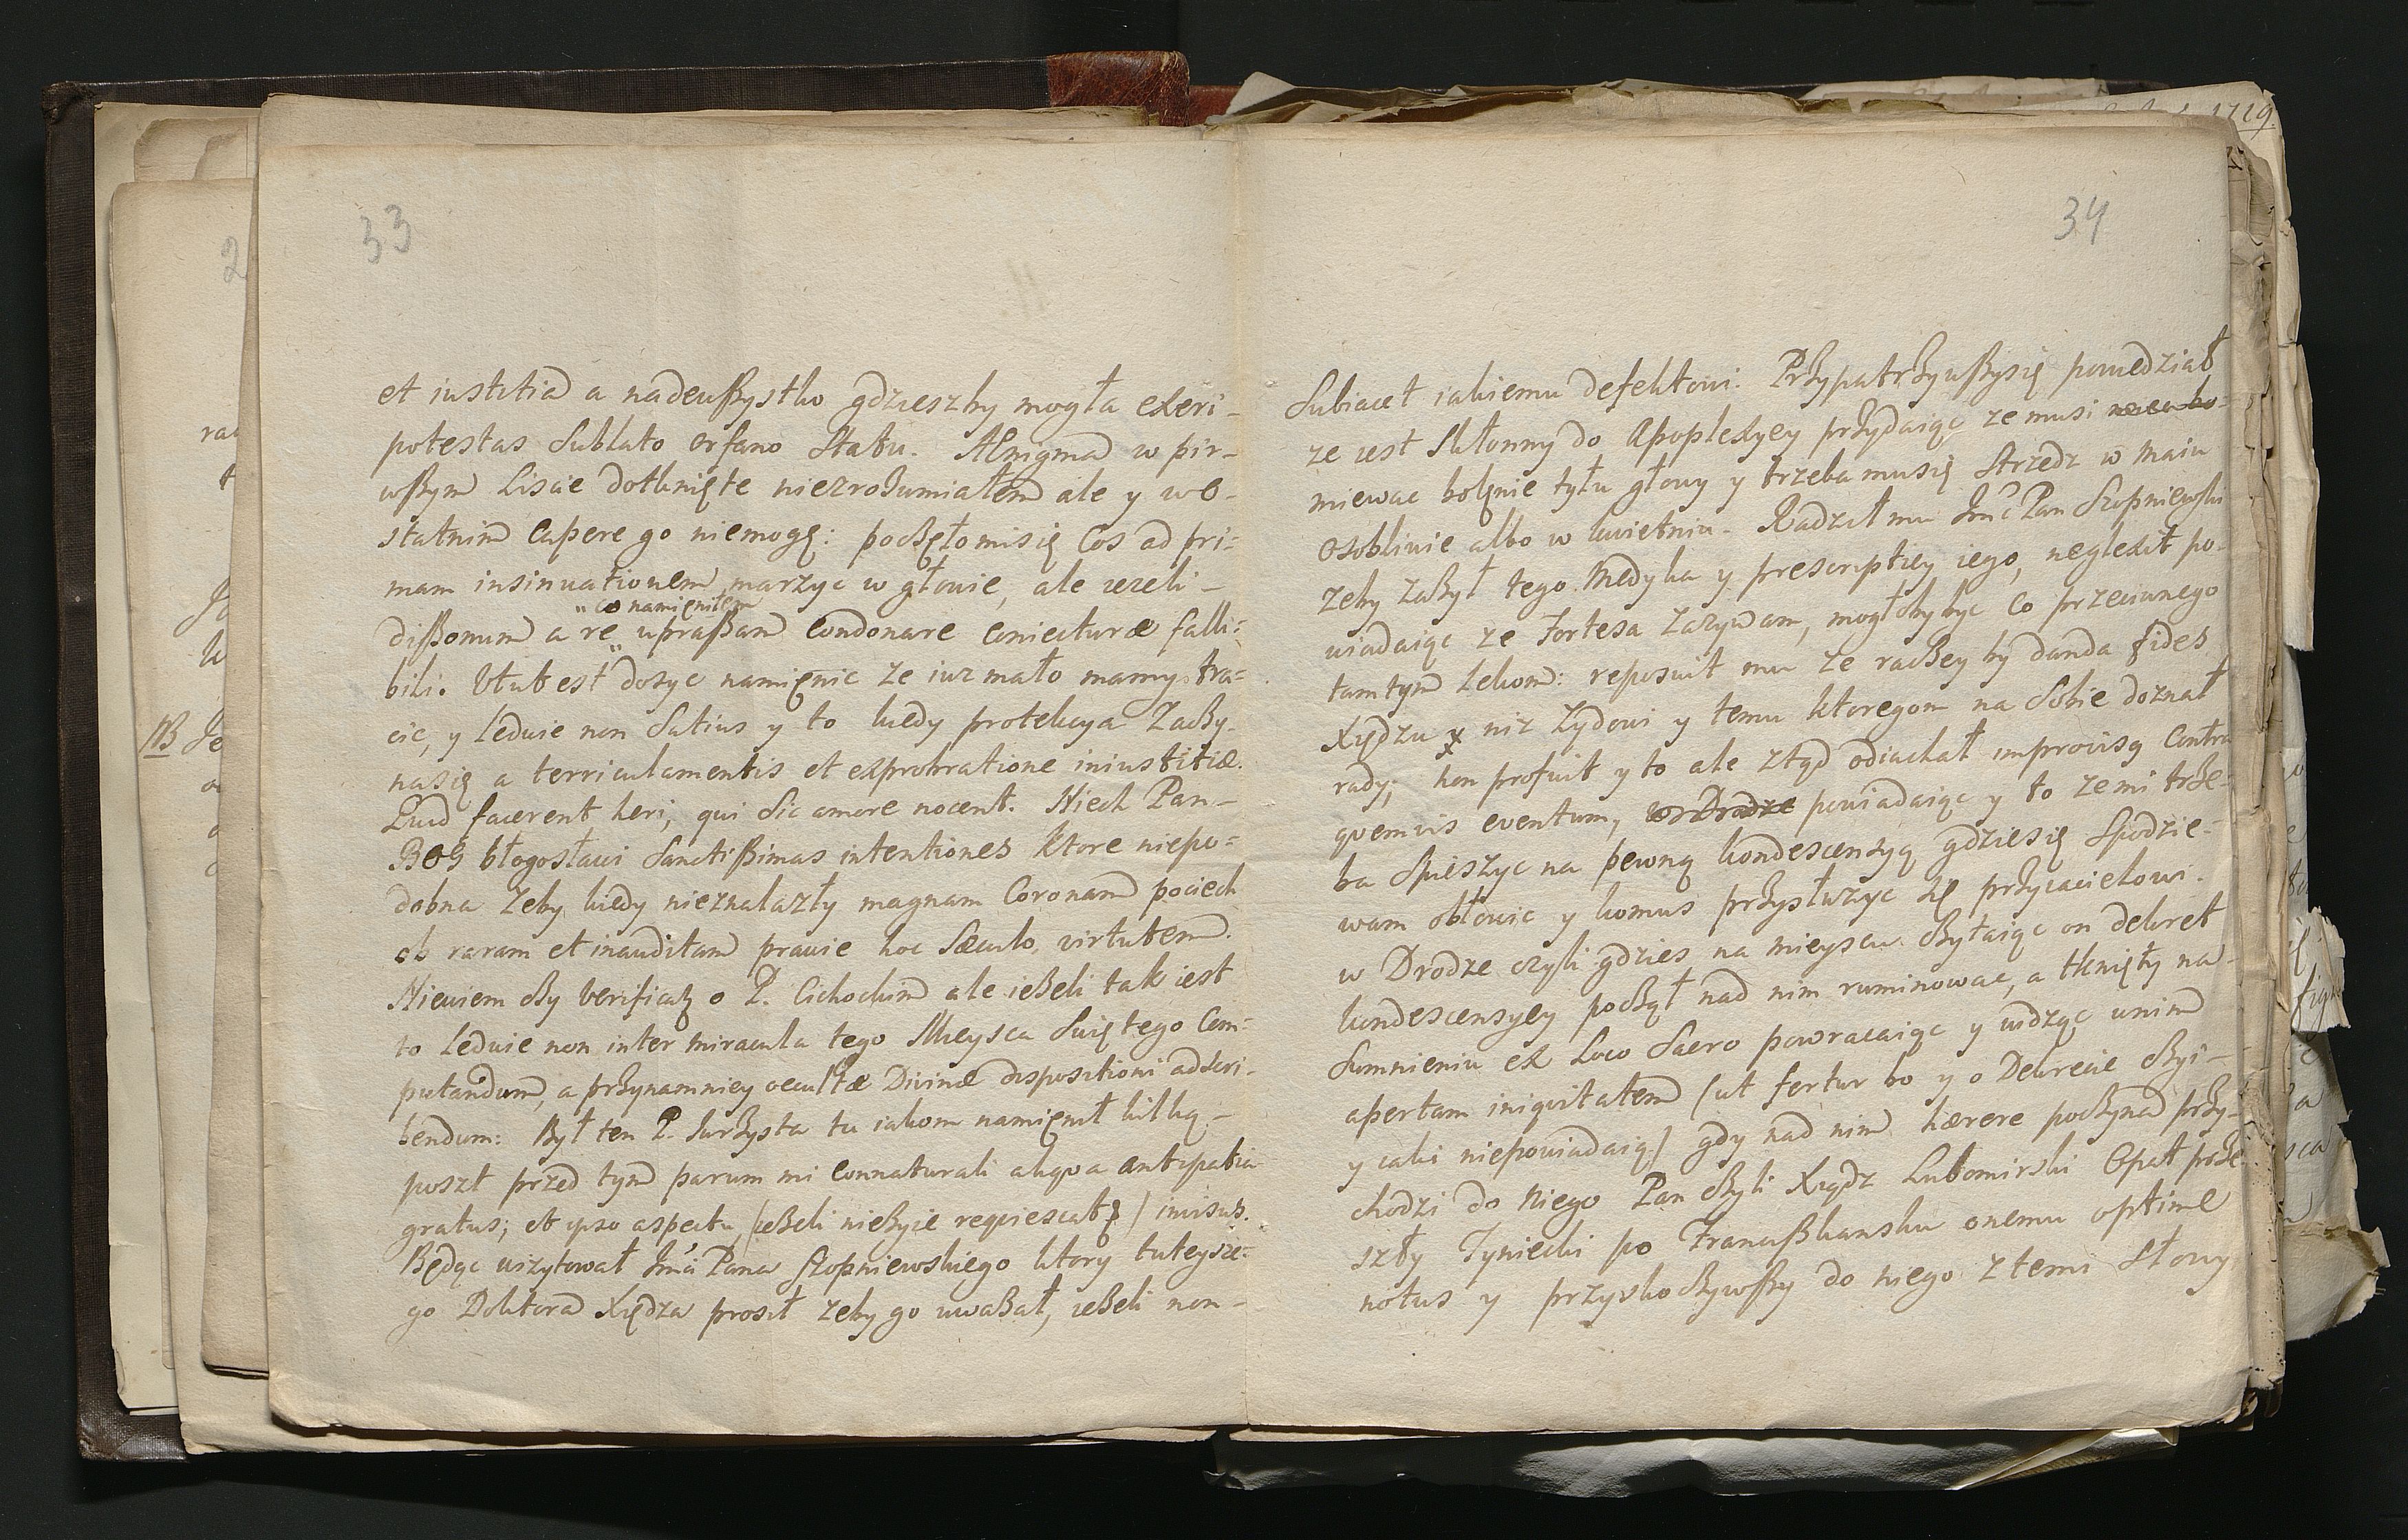 33
et iustitia a nadewszystko gdzieszby mogła exeri-
potestas sublato orfano statu. Ænigma w pir-
wszym Liscie dotknięte niezrozumiałem ale y w o-
statnim capere go niemogę: poczęłomisię Cos ad pri-
mam insinuationem marzyc w głowie, ale iezeli-
"co namieniłem
dissonum a re" upraszam condonare coniecturæ falli-
bili. Utut est dosyc namięnic ze iuz mało mamy stra-
cic, y ledwie non satius y to kiedy protekcya Zaczy-
nasię a terriculamentis et exprobratione iniustitiæ.
Quid facerent heri, qui sic amore nocent. Niech Pan-
BOG błogosławi Sanctissimas intentiones ktore niepo-
dobna Zeby kiedy nieznalazły magnam Coronam pociech
ob raram et inauditam prawie hoc Sæculo virtutem.
Niewiem czy verificatę o P. Cichockim ale iezeli tak iest
to ledwie non inter miracula tego Mieysca Swiętego Com-
putandum, a przynamniey occultæ Divinæ dispositioni adscri-
bendum: Był ten P. Jurzysta tu iakom namięnił kilką-
poszt przed tym parum mi connaturali aliqua antipatia
gratus; et ipso aspectu (iezeli nieżyie requiescat) invisus.
Będąc wizytował Jmci Pana Szopniewskiego ktory tuteysze-
go Doktora Xiędza prosił zeby go uwazał, iezeli non-
34
Subiacet iakiemu defektowi. Przypatrzywszysię powiedział
ze iest skłonny do Apoplexyey przydaiąc ze musi
miewac bolęnie tyłu głowy y trzeba musię strzedz w Maiu
osobliwie albo w kwietniu. Radził mu Jmć Pan Szopniewski
zeby zazył tego Medyka y prescriptiey iego, neglexit po-
wiadaiąc ze Fortesa Zazywam, mogłoby byc co przeciwnego
tamtym lekom: reposuit mu ze raczey by danda fides
Xiędzu niz Zydowi y temu ktoregom na sobie doznał
rady; non profuit y to ale ztąd odiachał improvisą contra
quemvis eventum, w Drodze powiadaiąc y to ze mi trze-
ba spieszyc na pewną kondescensyą gdziesię spodzie-
wam obłowic y komus przysłużyc się przyiacielowi.
w Drodze czyli gdzies na mieyscu czytaiąc on dekret
kondescensyey począł nad nim ruminowac, a tknięty na-
Sumnieniu ex Loco Sacro powracaiąc y widząc w nim
apertam iniquitatem (ut fertur bo y o Dekrecie czyi-
y iaki niepowiadaią) gdy nad nim hærere poczyna przy-
chodzi do niego Pan czyli Xiądz Lubomirski Opat prze-
szły Tyniecki po Francuszkansku onemu optime
notus y przyskoczywszy do niego z temi słowy